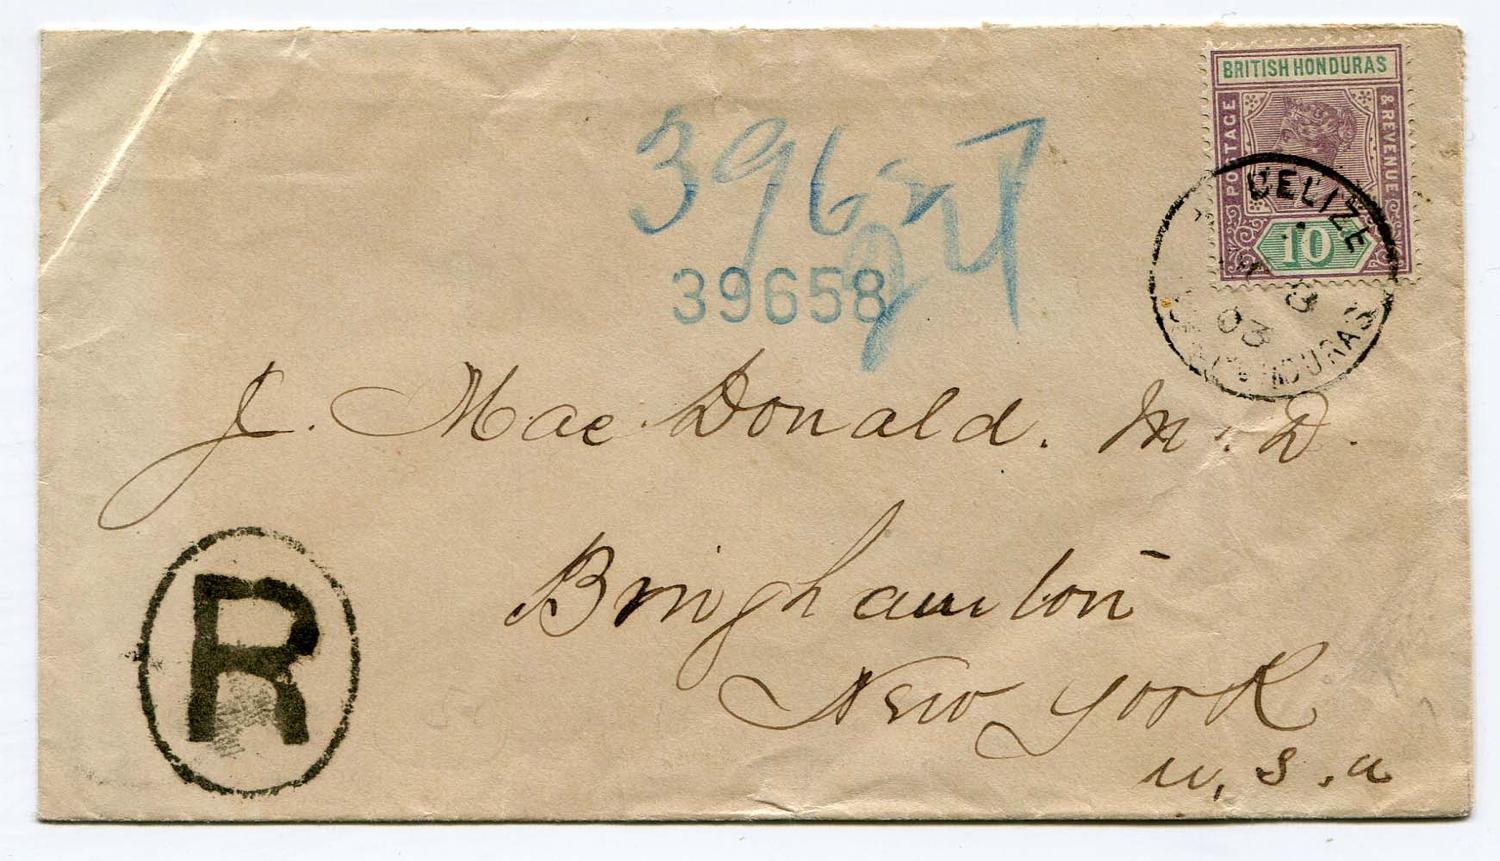 BRITISH HONDURAS
POSTAGE
& REVENUE
10
BELIZE
03
HONDURAS
396
39658
J. Mac Donald. M. D.
Bringhamton
New York
U. S. A
R